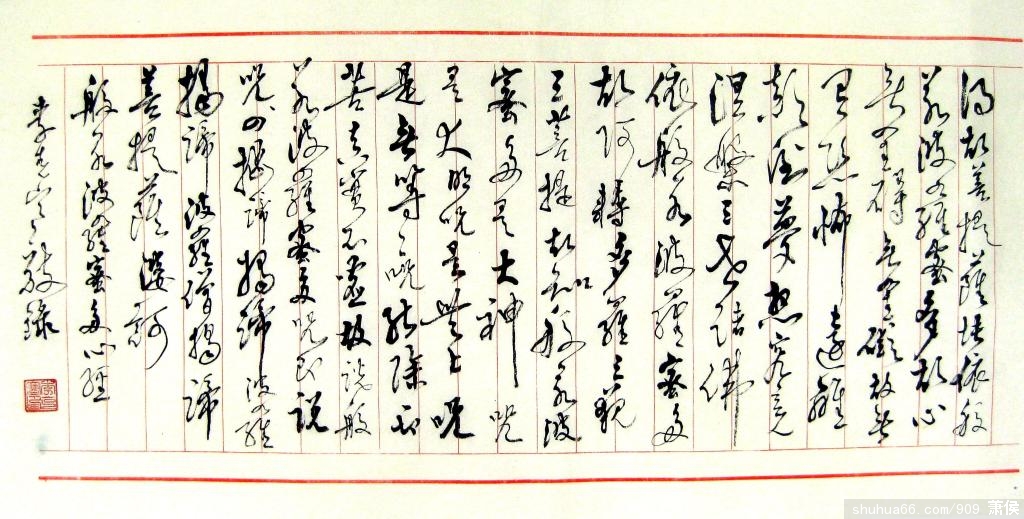 得故菩提薩埵依般
若波羅蜜多故心
無罣礙無罣礙故無
有恐怖遠離
顛倒夢想究竟
涅槃三世諸佛
依般若波羅蜜多
故阿耨多羅三藐
三菩提故知般若波
蜜多是大神咒
是大明咒是無上咒
是無等等咒能除一切
苦真實不虛故說般
若波羅蜜多咒即說
咒曰揭諦揭諦波羅
揭諦波羅僧揭諦
菩提薩婆訶
般若波羅蜜多心經
李 敬錄
shuhua66.com/909 萧侯